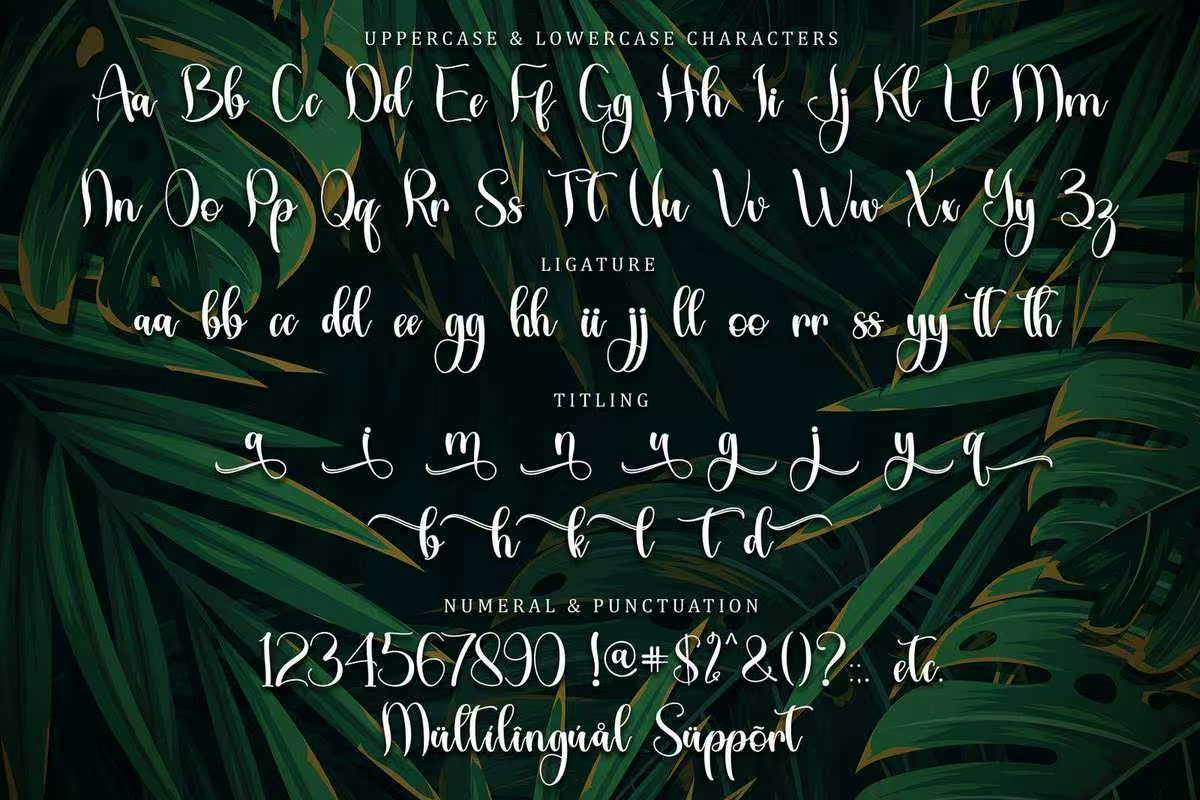 UPPERCASE & LOWERCASE CHARACTERS
Aa Bb Cc Dd Ee Ff Gg Hh Ii Jj Kk Ll Mm
Nn Oo Pp Qq Rr Ss Tt Uu Vv Ww Xx Yy Zz
LIGATURE
aa bb cc dd ee gg hh ii jj ll oo rr ss yy tt th
TITLING
a i m n u g j y q
b h k l t d
NUMERAL & PUNCTUATION
1234567890 !@#$%^&()?:;. etc.
Mültílîngúål Süppõrt